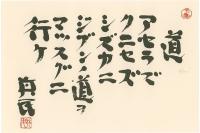 道
アセラデ
クニセズ
シズカニ
ジブン道ヲ
マッスグニ
行ケ
真民